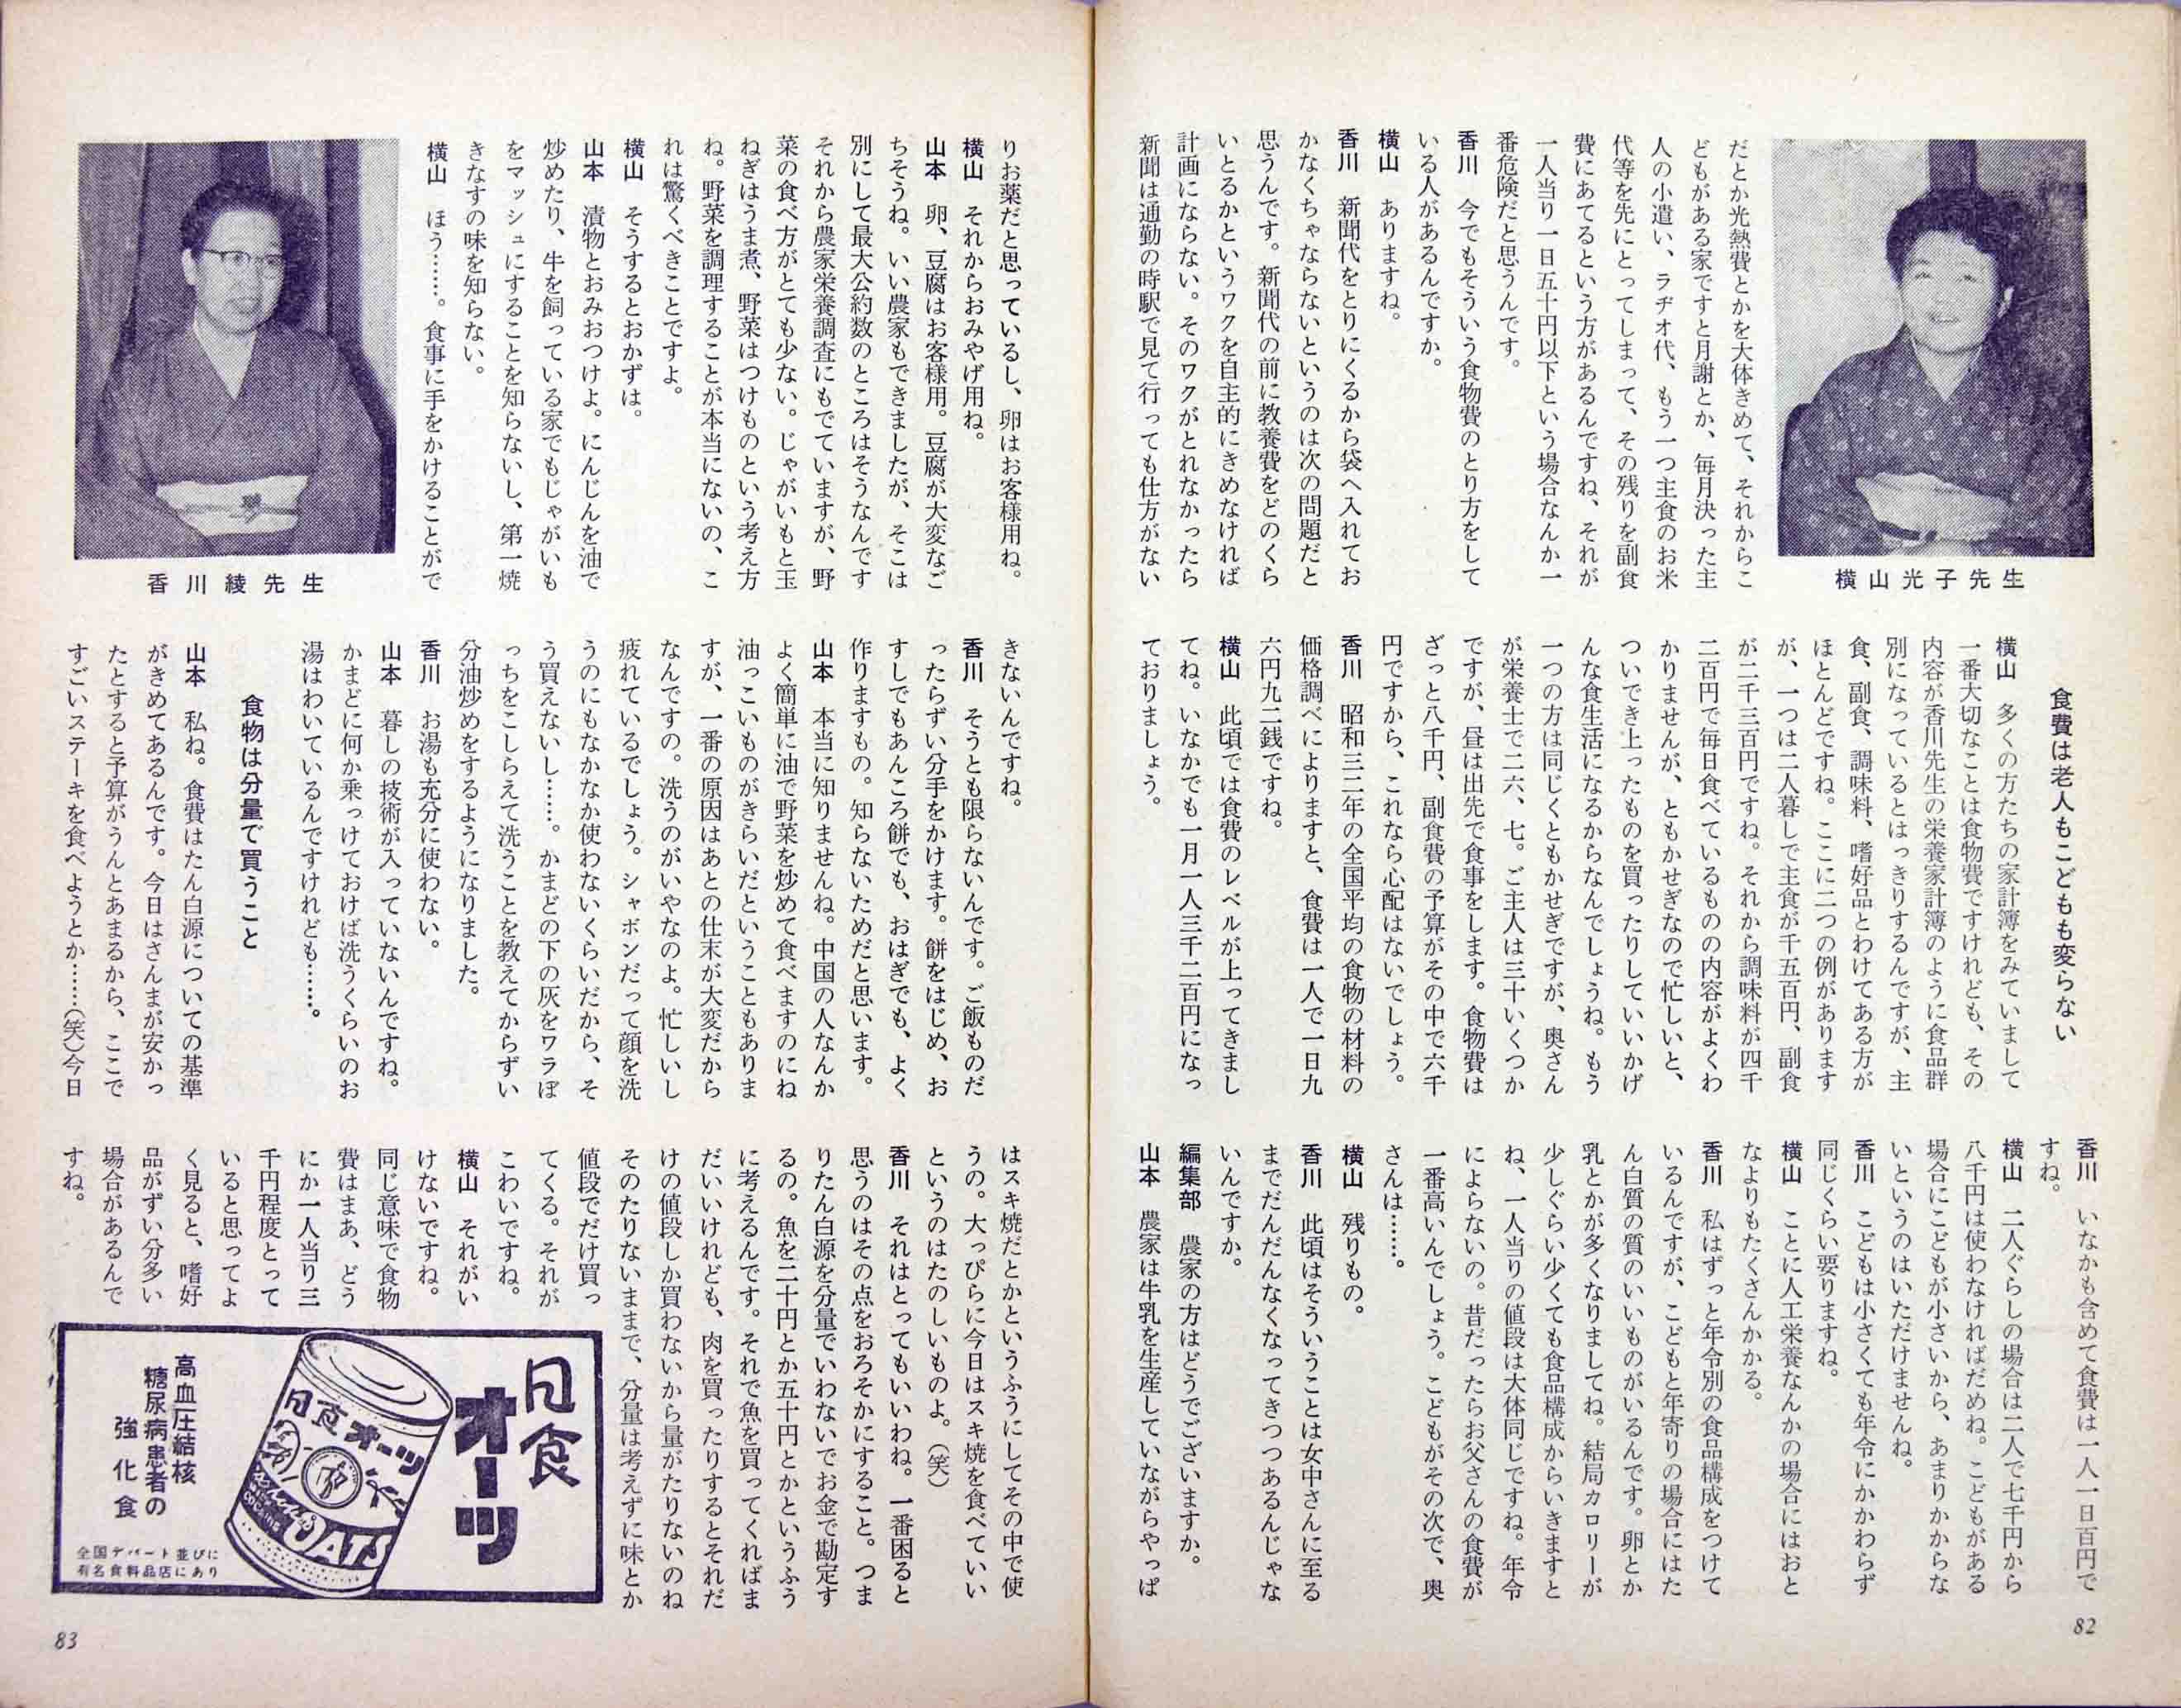 だとか光熱費とかを大体きめて、それからこ
どもがある家ですと月謝とか、毎月決った主
人の小遣い、ラヂオ代、もう一つ主食のお米
代等を先にとってしまって、その残りを副食
費にあてるという方があるんですね、それが
一人当り一日五十円以下という場合なんか一
番危険だと思うんです。
香川　今でもそういう食物費のとり方をして
いる人があるんですか。
横山　ありますね。
香川　新聞代をとりにくるから袋へ入れてお
かなくちゃならないというのは次の問題だと
思うんです。新聞代の前に教養費をどのくら
いとるかというワクを自主的にきめなければ
計画にならない。そのワクがとれなかったら
新聞は通勤の時駅で見て行っても仕方がない
横山光子先生
食費は老人もこどもも変らない
横山　多くの方たちの家計簿をみていまして
一番大切なことは食物費ですけれども、その
内容が香川先生の栄養家計簿のように食品群
別になっているとはっきりするんですが、主
食、副食、調味料、嗜好品とわけてある方が
ほとんどですね。ここに二つの例があります
が、一つは二人暮しで主食が千五百円、副食
が二千三百円ですね。それから調味料が四千
二百円で毎日食べているものの内容がよくわ
かりませんが、ともかせぎなので忙しいと、
ついでき上ったものを買ったりしていいかげ
んな食生活になるからなんでしょうね。もう
一つの方は同じくともかせぎですが、奥さん
が栄養士で二六、七。ご主人は三十いくつか
ですが、昼は出先で食事をします。食物費は
ざっと八千円、副食費の予算がその中で六千
円ですから、これなら心配はないでしょう。
香川　昭和三二年の全国平均の食物の材料の
価格調べによりますと、食費は一人で一日九
六円九二銭ですね。
横山　此頃では食費のレベルが上ってきまし
てね。いなかでも一月一人三千二百円になっ
ておりましょう。
香川　いなかも含めて食費は一人一日百円で
すね。
横山　二人ぐらしの場合は二人で七千円から
八千円は使わなければだめね。こどもがある
場合にこどもが小さいから、あまりかからな
いというのはいただけませんね。
香川　こどもは小さくても年令にかかわらず
同じくらい要りますね。
横山　ことに人工栄養なんかの場合にはおと
なよりもたくさんかかる。
香川　私はずっと年令別の食品構成をつけて
いるんですが、こどもと年寄りの場合にはた
ん白質の質のいいものがいるんです。卵とか
乳とかが多くなりましてね。結局カロリーが
少しぐらい少くても食品構成からいきますと
ね、一人当りの値段は大体同じですね。年令
によらないの。昔だったらお父さんの食費が
一番高いんでしょう。こどもがその次で、奥
さんは……。
横山　残りもの。
香川　此頃はそういうことは女中さんに至る
までだんだんなくなってきつつあるんじゃな
いんですか。
編集部　農家の方はどうでございますか。
山本　農家は牛乳を生産していながらやっぱ
82
りお薬だと思っているし、卵はお客様用ね。
横山　それからおみやげ用ね。
山本　卵、豆腐はお客様用。豆腐が大変なご
ちそうね。いい農家もできましたが、そこは
別にして最大公約数のところはそうなんです
それから農家栄養調査にもでていますが、野
菜の食べ方がとても少ない。じゃがいもと玉
ねぎはうま煮、野菜はつけものという考え方
ね。野菜を調理することが本当にないの、こ
れは驚くべきことですよ。
横山　そうするとおかずは。
山本　漬物とおみおつけよ。にんじんを油で
炒めたり、牛を飼っている家でもじゃがいも
をマッシュにすることを知らないし、第一焼
きなすの味を知らない。
横山　ほう……。食事に手をかけることがで
香川綾先生
きないんですね。
香川　そうとも限らないんです。ご飯ものだ
ったらずい分手をかけます。餅をはじめ、お
すしでもあんころ餅でも、おはぎでも、よく
作りますもの。知らないためだと思います。
山本　本当に知りませんね。中国の人なんか
よく簡単に油で野菜を炒めて食べますのにね
油っこいものがきらいだということもありま
すが、一番の原因はあとの仕末が大変だから
なんですの。洗うのがいやなのよ。忙しいし
疲れているでしょう。シャボンだって顔を洗
うのにもなかなか使わないくらいだから、そ
う買えないし……。かまどの下の灰をワラぼ
っちをこしらえて洗うことを教えてからずい
分油炒めをするようになりました。
香川　お湯も充分に使わない。
山本　暮しの技術が入っていないんですね。
かまどに何か乗っけておけば洗うくらいのお
湯はわいているんですけれども……。
食物は分量で買うこと
山本　私ね。食費はたん白源についての基準
がきめてあるんです。今日はさんまが安かっ
たとすると予算がうんとあまるから、ここで
すごいステーキを食べようとか……（笑）今日
はスキ焼だとかというふうにしてその中で使
うの。大っぴらに今日はスキ焼を食べていい
というのはたのしいものよ。（笑）
香川　それはとってもいいわね。一番困ると
思うのはその点をおろそかにすること。つま
りたん白源を分量でいわないでお金で勘定す
るの。魚を二十円とか五十円とかというふう
に考えるんです。それで魚を買ってくればま
だいいけれども、肉を買ったりするとそれだ
けの値段しか買わないから量がたりないのね
そのたりないままで、分量は考えずに味とか
値段でだけ買っ
てくる。それが
こわいですね。
横山　それがい
けないですね。
同じ意味で食物
費はまあ、どう
にか一人当り三
千円程度とって
いると思ってよ
く見ると、嗜好
品がずい分多い
場合があるんで
すね。
日食
オーツ
日食オーツ
OATS
高血圧結核
糖尿病患者の
強化食
全国デパート並びに
有名食料品店にあり
83